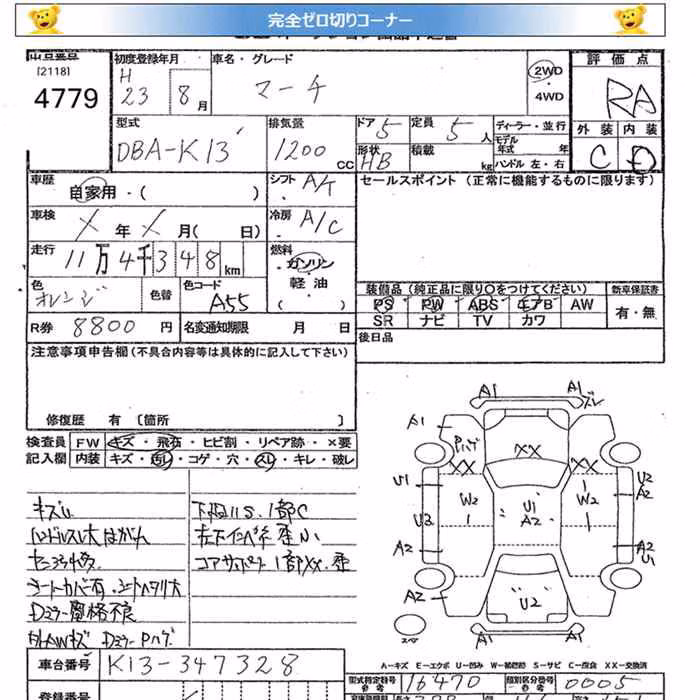 完全ゼロ切りコーナー
[2118]
4779
初度登録年月
H
23 8月
車名・グレード
マーチ
2WD
・
4WD
評価点
RA
外装 内装
C D
型式
DBA-K13
排気量
1200 CC
ドア 5
定員 5人
形状 HB
積載 kg
ディーラー・並行
モデル年式 年
ハンドル 左・右
車歴
自家用・( )
シフト A/T
セールスポイント (正常に機能するものに限ります)
車検
X年X月( 日)
冷房 A/C
走行
11万4千348km
燃料
ガソリン
軽油
( )
色
オレンジ
色替
色コード
A55
装備品(純正品に限り○をつけてください)
新車保証書
PS PW ABS エアB AW
SR ナビ TV カワ
有・無
R券 8800円
名変通知期限 月 日
後日品
注意事項申告欄(不具合内容等は具体的に記入して下さい)
修復歴 有 [箇所 ]
検査員
記入欄
FW キズ・飛石・ヒビ割・リペア跡・×要
内装 キズ・汚レ・コゲ・穴・スレ・キレ・破レ
キズ凹
ハンドルスレ大はがれ
下回りS.1部C
コアサポート1部XX.歪
シートカバー有.シートヘタリ大
Dミラー格格不良
外AWキズ Dミラー Pハゲ
A1 A1
A1 Pハゲ
XX
XX XX
U1 W2 U1 A2 W2 U2 A2
U3
A2 A2 U1
A2 U2
A1 A1
スペア
A－キズ E－エクボ U－凹み W－補修跡 S－サビ C－腐食 XX－交換済
車台番号 K13-347328
型式指定番号
参考
16470
類別区分番号
参考
0005
登録番号